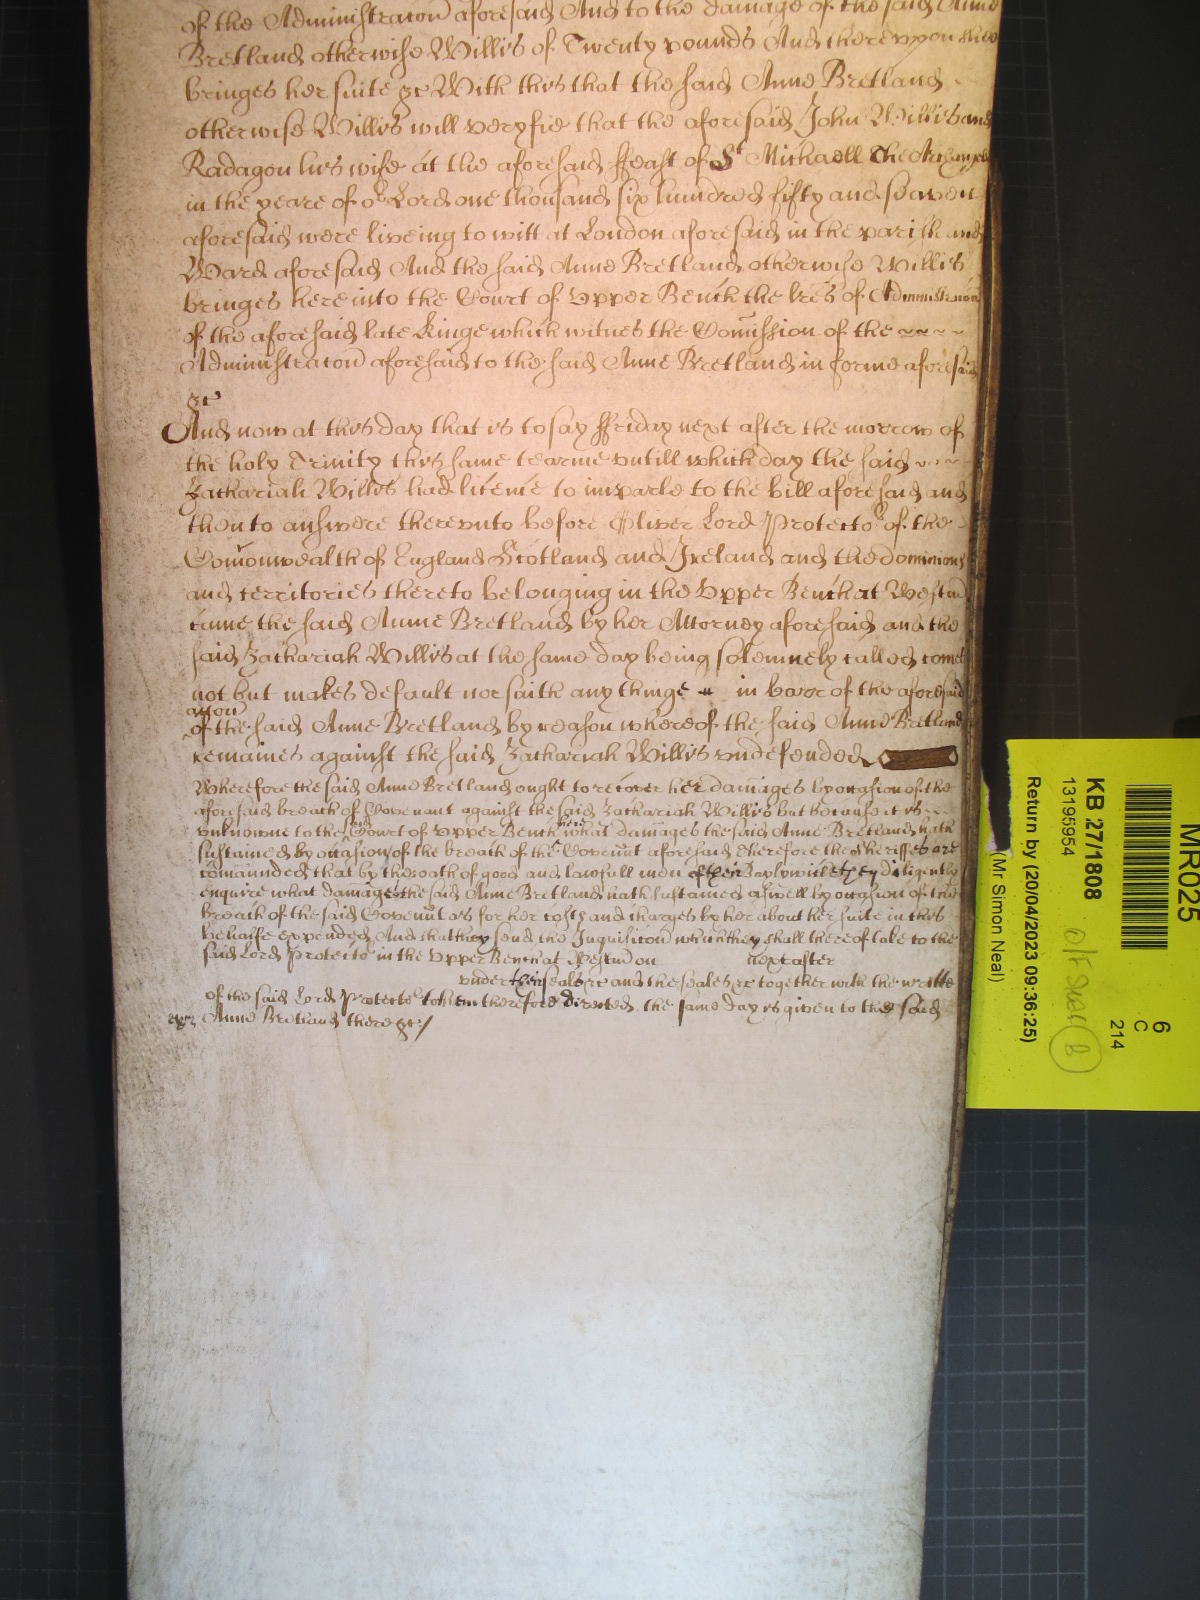 of the Administracon aforesaid And to the damage of the said Anne
Bretland otherwise Willis of Twenty pounds And thereupon shee
bringes her suite &c With this that the said Anne Bretland
otherwise Willis will veryfie that the aforesaid John Willis and
Radagon his wife at the aforesaid ffeast of St Michaell the Archangell
in the yeare of or Lord one thousand six hundred fifty and seaven
aforesaid were liveing to witt at London aforesaid in the parish and
Ward aforesaid And the said Anne Bretland otherwise Willis
bringes here into the Court of Upper Bench the lres of Administracon
of the aforesaid late Kinge which witnes the Comission of the ~ ~ ~ ~
Administracon aforesaid to the said Anne Bretland in forme aforesaid
&c
And now at this day that is to say ffriday next after the morrow of
the holy Trinity this same tearme untill which day the said ~ ~ ~
Zachariah Willis had licence to imparle to the bill aforesaid and
then to answere thereunto before Oliver Lord Protector of the
Comonwealth of England Scotland and Ireland and the dominions
and territories thereto belonging in the Upper Bench at Westm
came the said Anne Bretland by her Attorney aforesaid and the
said Zachariah Willis at the same day being solemnely called comes
not but makes default nor saith any thinge in barr of the aforesaid
accon
of the said Anne Bretland by reason whereof the said Anne Bretland
remaines against the said Zachariah Willis undefended
Wherefore the said Anne Bretland ought to recover her damages by occasion of the
aforesaid breach of Covenant against the said Zachariah Willis but because it is ~ ~
unknowne to the said Court of Upper Bench here what damages the said Anne Bretland hath
sustained by occasion of the breach of the Covennt aforesaid Therefore the Sheriffes are
comaunded that by the oath of good and lawfull men of their Baylywicke they diligently
enquire what damages the said Anne Bretland hath sustained aswell by occasion of the
breach of the said Covennt as for her costs and charges by her about her suite in this
behalfe expended And that they send the Inquisicon which they shall thereof take to the
said Lord Protector in the Upper Bench at Westm on next after
under their seales &c and the seales &c together with the writte
of the said Lord Protector to them therefore directed the same day is given to the said
Anne Bretland there &c/
MR025
6
C
214
KB 27/1808
13195954
Return by (20/04/2023 09:36:25)
(Mr Simon Neal)